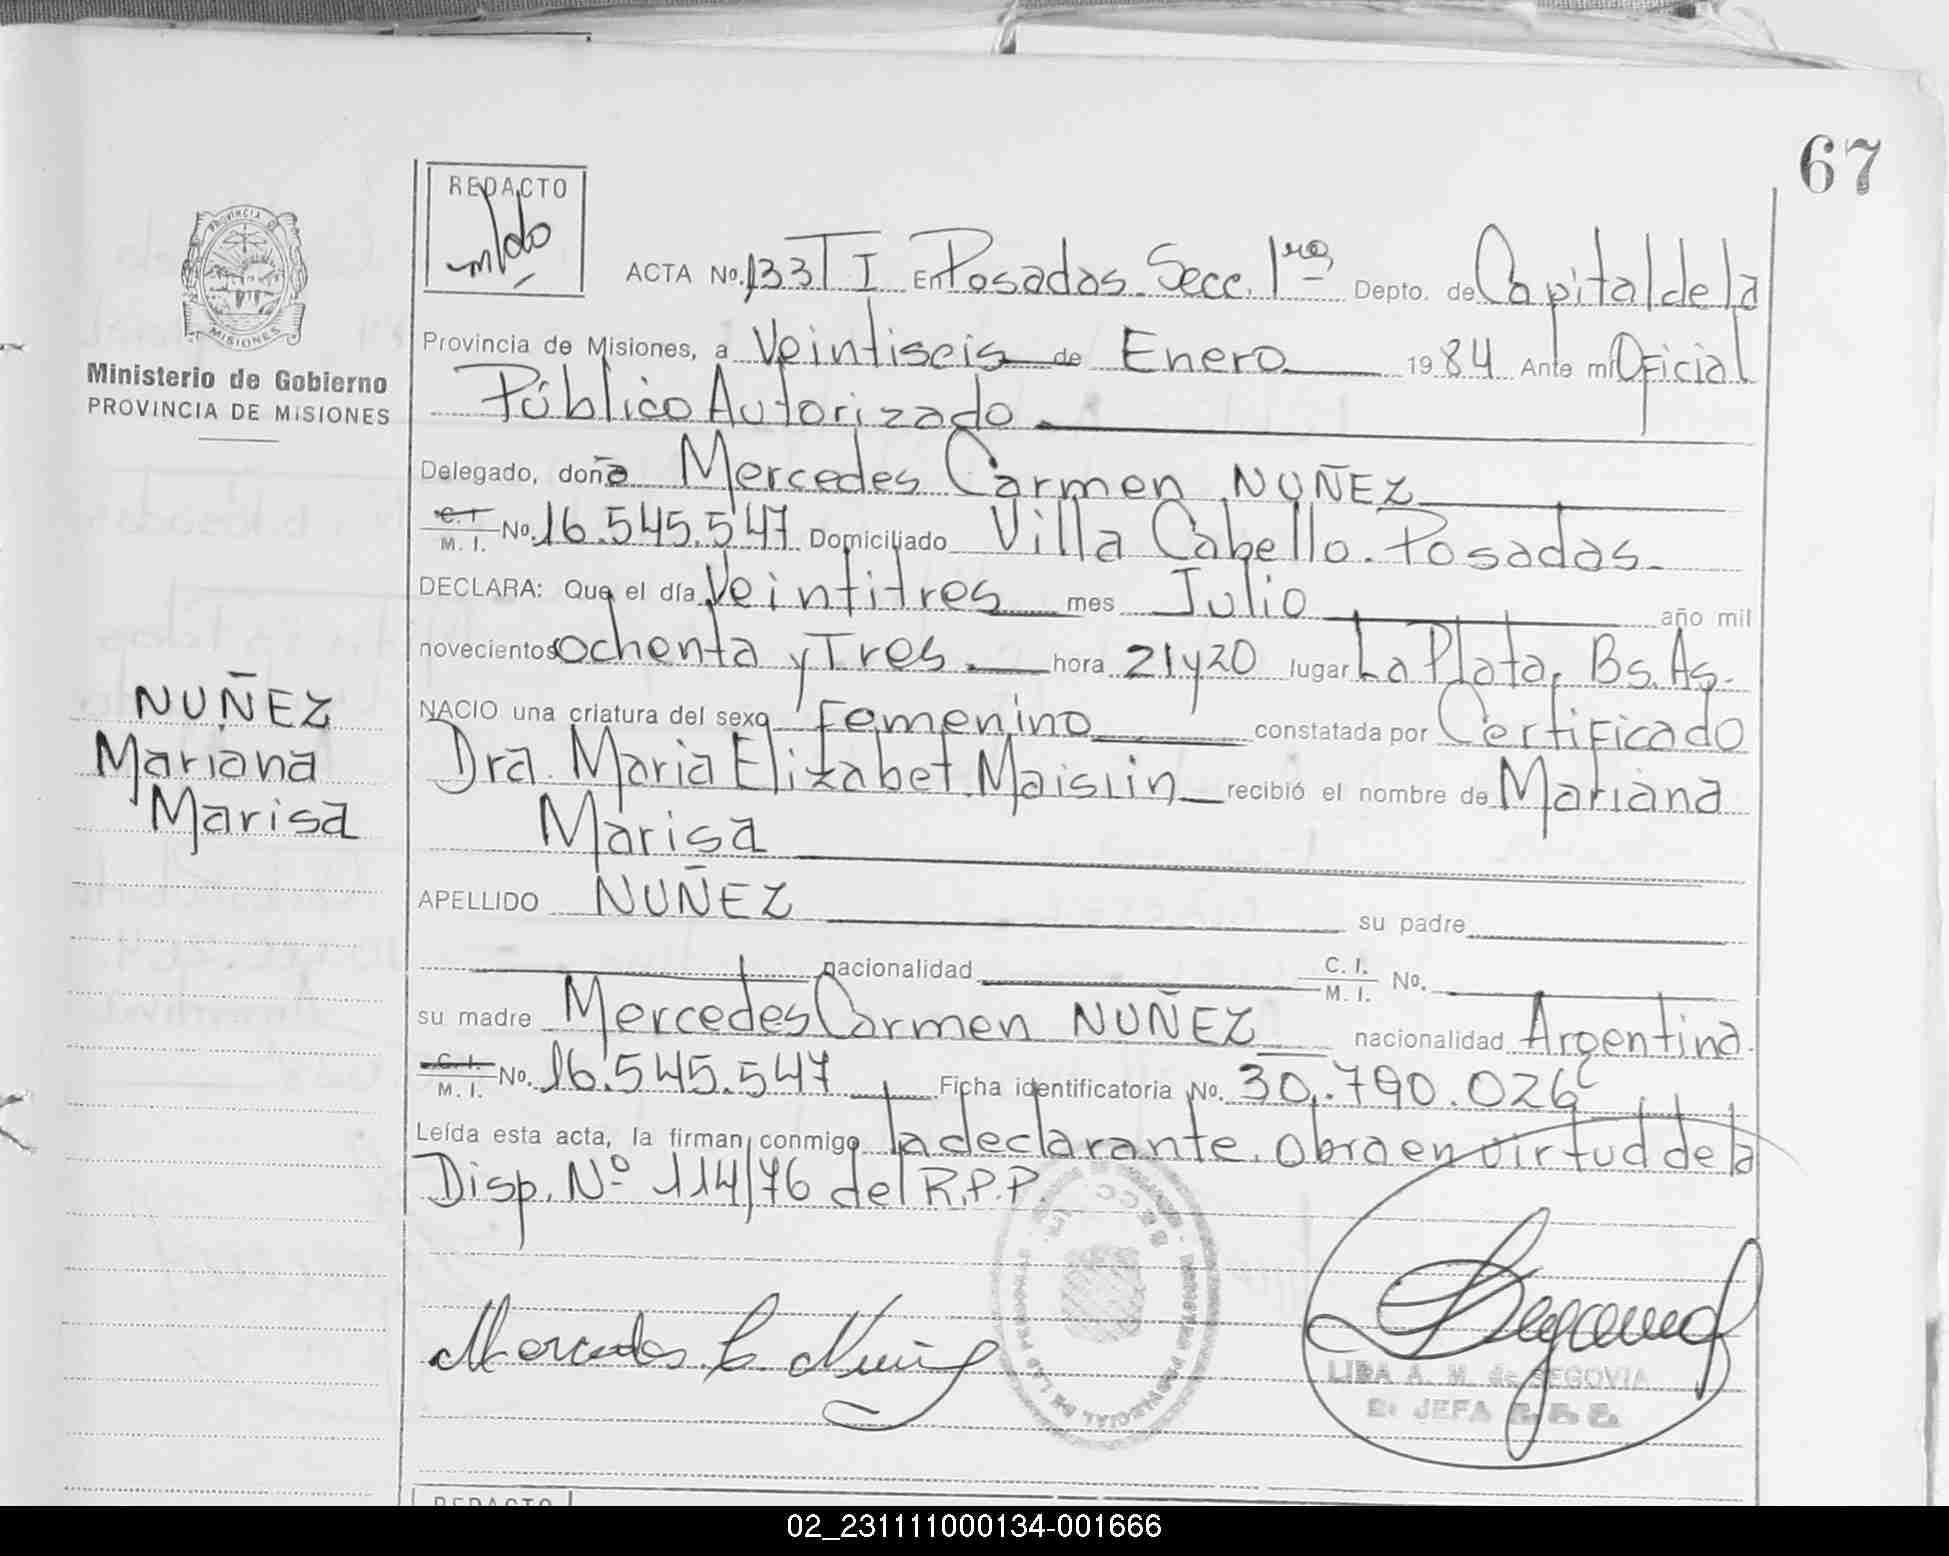 67
REDACTO
PROVINCIA DE
MISIONES
Ministerio de Gobierno
PROVINCIA DE MISIONES
ACTA No. 133 T I En Posadas. Secc. 1ra Depto. de Capital de la
Provincia de Misiones, a Veintiseis de Enero 1984 Ante mí Oficial
Público Autorizado
Delegado, doña Mercedes Carmen NUÑEZ
C. I. M. I. No. 16.545.547 Domiciliado Villa Cabello. Posadas.
DECLARA: Que el día Veintitres mes Julio año mil
novecientos ochenta y Tres hora 21 y 20 lugar La Plata, Bs. As.
NACIO una criatura del sexo femenino constatada por Certificado
Dra. Maria Elizabet Maislin recibió el nombre de Mariana
Marisa
NUÑEZ
Mariana
Marisa
APELLIDO NUÑEZ su padre
nacionalidad C. I. M. I. No.
su madre Mercedes Carmen NUÑEZ nacionalidad Argentina.
C. I. M. I. No. 16.545.547 Ficha identificatoria No. 30.790.026
Leída esta acta, la firman conmigo la declarante. obra en virtud de la
Disp. Nº 114/76 del R.P.P.
Mercedes C. Nuñez
LIBA A. M. de SEGOVIA
JEFA
REDACTO
02_231111000134-001666